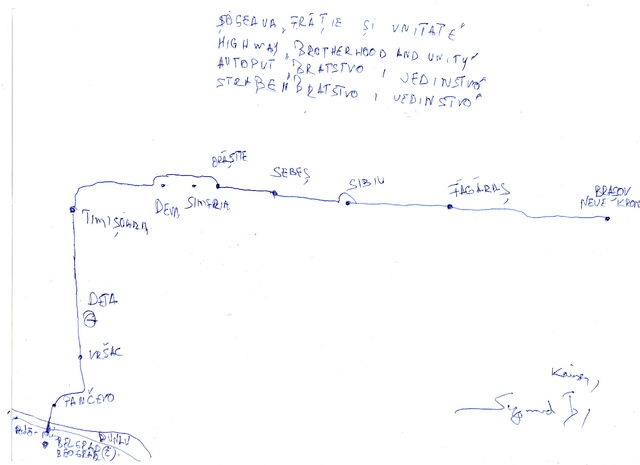 ȘOSEAUA „FRĂȚIE ȘI UNITATE"
HIGHWAY „BROTHERHOOD AND UNITY"
AUTOPUT „BRATSTVO I JEDINSTVO"
BRATSTVO I JEDINSTVO"
ORĂȘTIE
SEBEȘ
SIBIU
FĂGĂRAȘ
BRAȘOV
NEUE KRON
DEVA
SIMERIA
TIMIȘOARA
DETA
VRŠAC
PANČEVO
DUNAV
BELGRAD(E)
BEOGRAD
Kaiser,